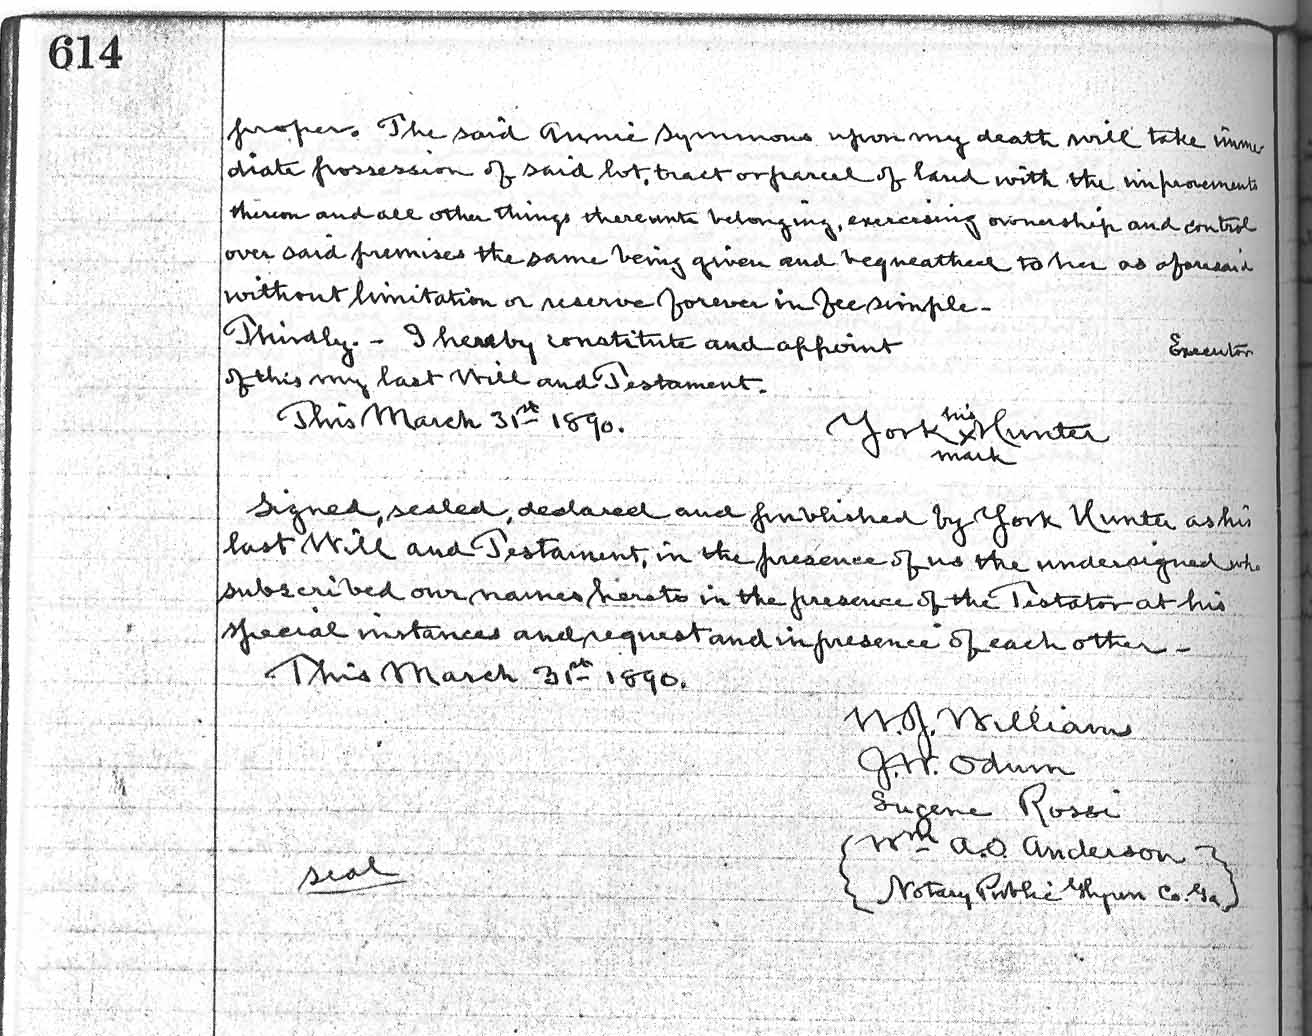 614
proper. The said Annie Symmons upon my death will take imme
diate possession of said lot, tract or parcel of land with the improvements
thereon and all other things thereunto belonging, exercising ownership and control
over said premises the same being given and bequeathed to her as aforesaid
without limitation or reserve forever in fee simple-
Thirdly. - I hereby constitute and appoint Executor
of this my last Will and Testament.
This March 31st 1890. York his x Hunter
mark
Signed, sealed, declared and published by York Hunter as his
last Will and Testament, in the presence of us the undersigned who
subscribed our names hereto in the presence of the Testator at his
special instances and request and in presence of each other -
This March 31st 1890.
W. J. Williams
J. W. Odum
Eugene Rossi
Wm A. O. Anderson
seal Notary Public Glynn Co. Ga.